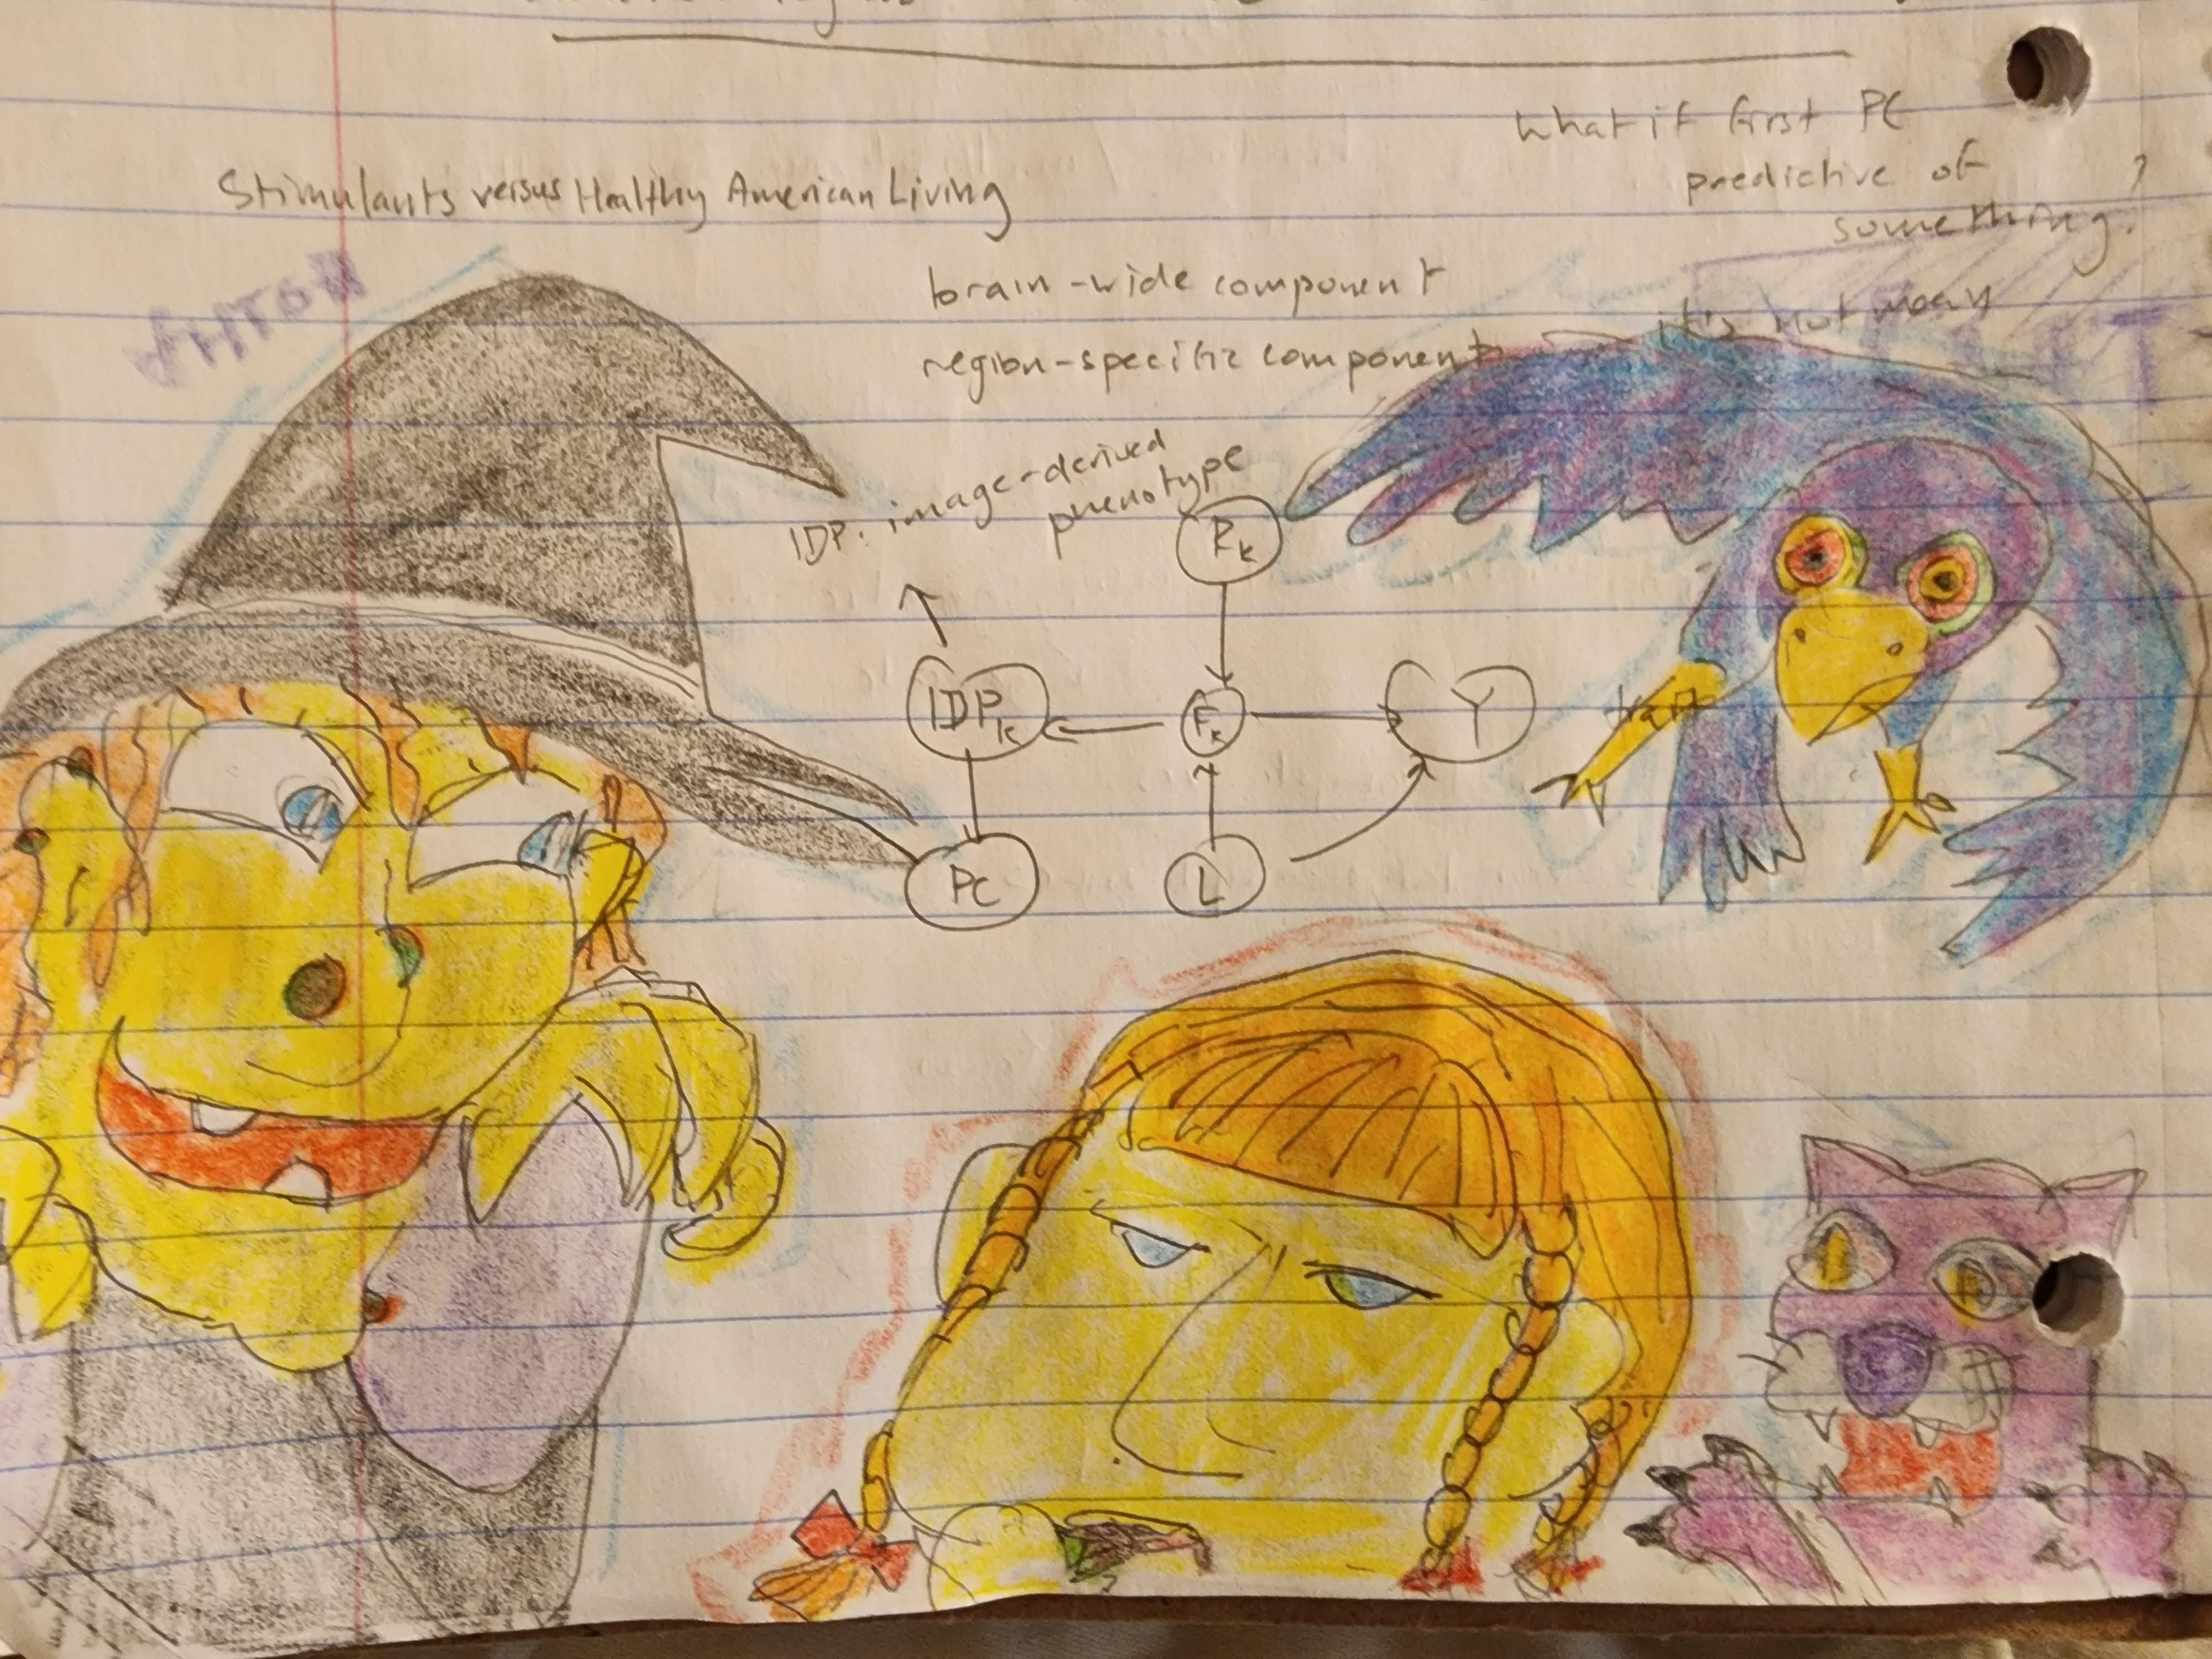 Stimulants versus Healthy American Living
what if first PC
predictive of
something?
brain-wide component
it's not mean
region-specific component
IDP: image-derived
phenotype
R_k
IDP_k
F_k
Y
PC
L